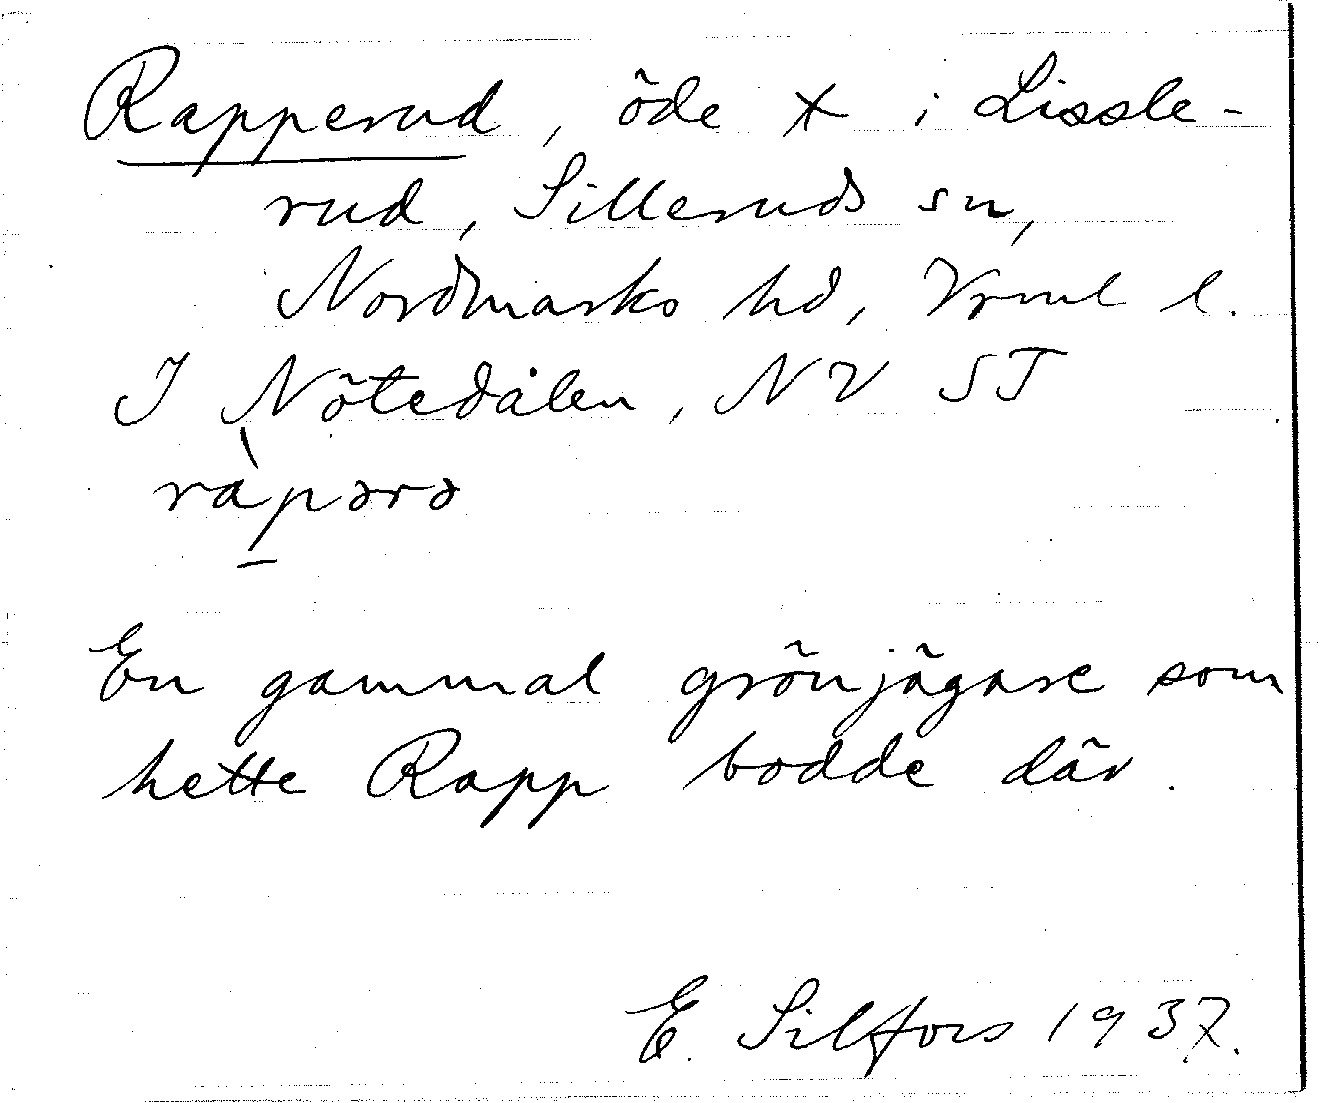 Rapperud, öde x i Lissle-
rud, Silleruds sn,
Nordmarks hd, Vrml l.
I Nötedalen, NV ST
ràpərə
En gammal grönjägare som
hette Rapp bodde där.
E. Silfors 1937.